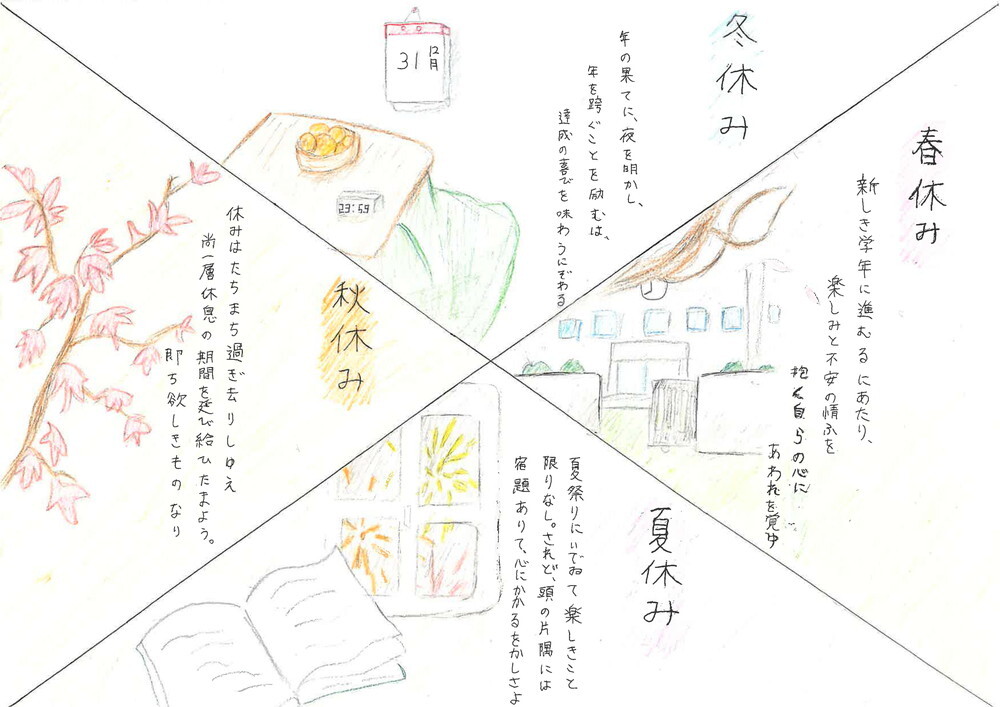 春休み
新しき学年に進むるにあたり、
楽しみと不安の情ふを
抱く自らの心に
あわれを覚ゆ
夏休み
夏祭りにいでゐて楽しきこと
限りなし。されど、頭の片隅には
宿題ありて、心にかかるをかしさよ
秋休み
休みはたちまち過ぎ去りしゆえ
尚一層休息の期間を延び給ひたまよう。
即ち欲しきものなり
冬休み
年の果てに、夜を明かし、
年を跨ぐことを励むは、
達成の喜びを味わうにぞわる
31
12月
23:59